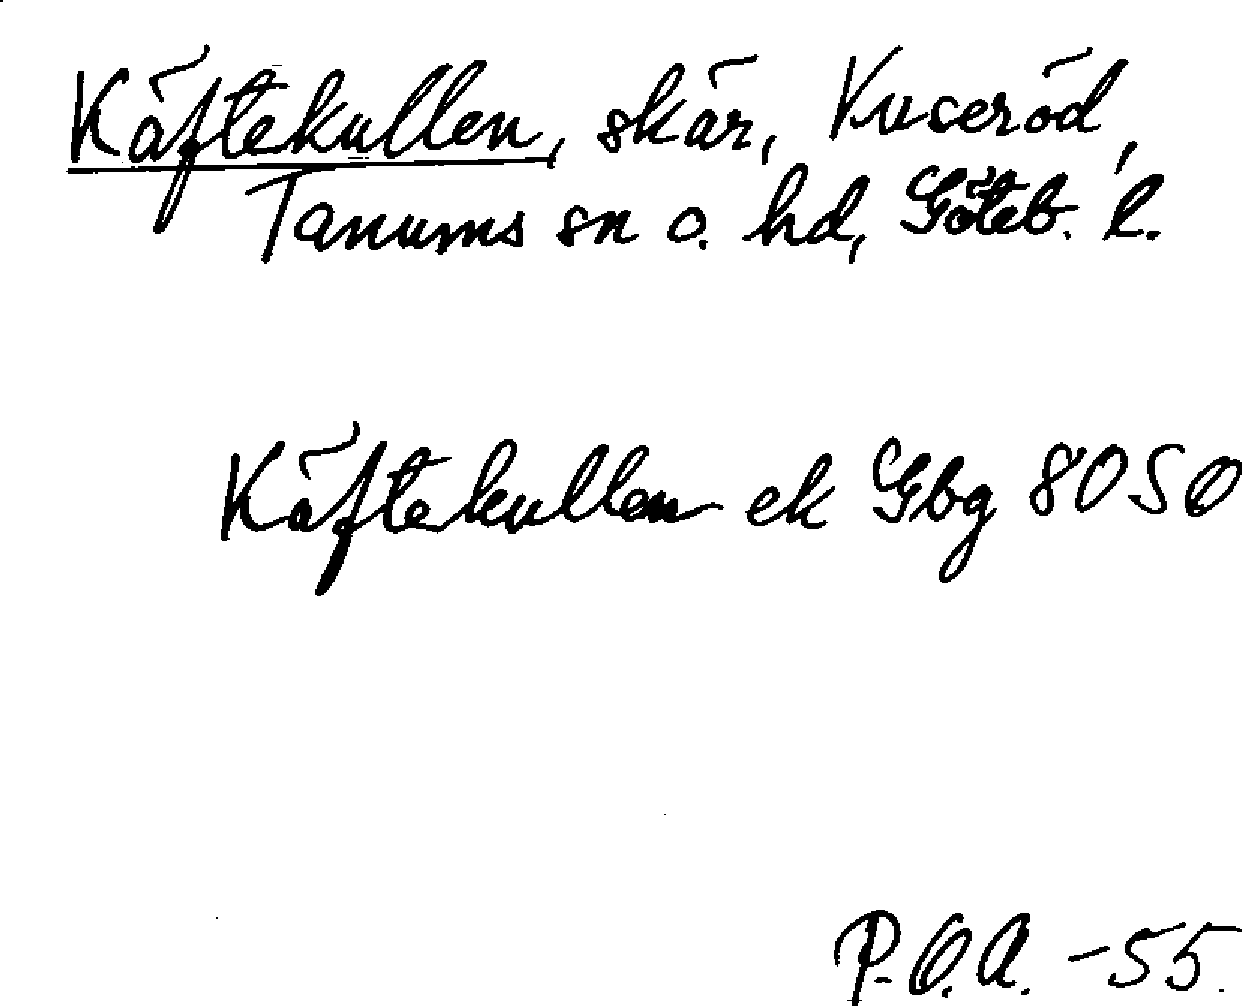 Käftekullen, skär, Kuseröd,
Tanums sn o. hd, Göteb. l.
Käftekullen ek Gbg 8050
P.O.A. -55.